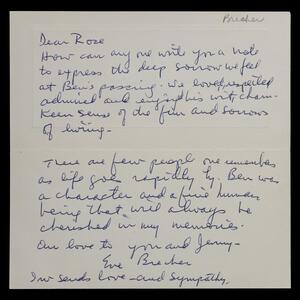 Brecher
Dear Rose
How can any one write you a note
to express the deep sorrow we feel
at Ben's passing. We loved, respected
admired and enjoyed his wit, charm
Keen sense of the fun and sorrows
of living -
There are few people one remembers
as life goes rapidly by. Ben was
a character and a fine human
being that will always be
cherished in my memories.
Our love to you and Jenny -
Eve Brecher
Irv sends love - and sympathy.